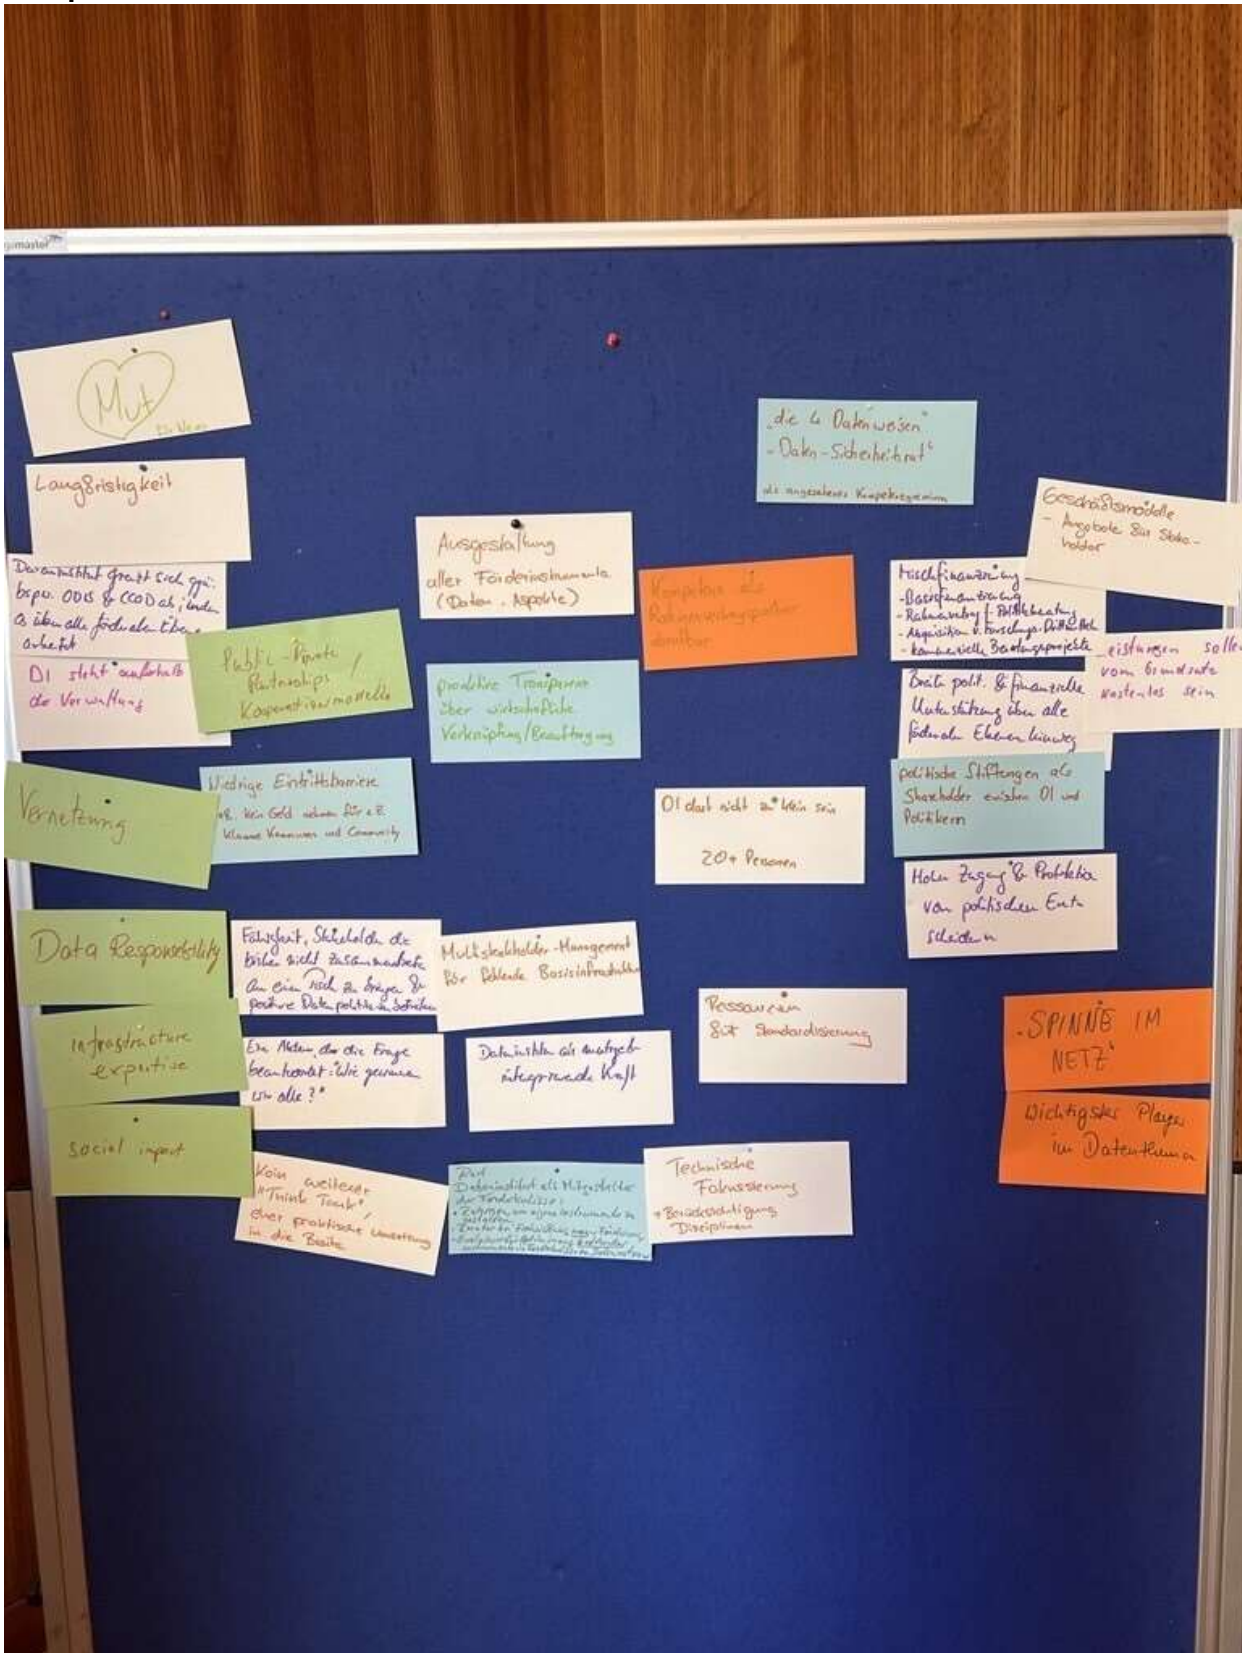 Mut
Langfristigkeit
Dateninstitut grenzt sich ggü.
bspw. ODIS & CCOD ab, indem
es über alle föderalen Ebenen
arbeitet
DI steht außerhalb
der Verwaltung
Public-Private
Partnerships /
Kooperationsmodelle
Vernetzung
Niedrige Eintrittsbarriere
z.B. kein Geld nehmen für z.B.
kleine Kommunen und Community
Data Responsibility
infrastructure
expertise
social impact
Fähigkeit, Stakeholder die
bisher nicht zusammenarbeiten
an einen Tisch zu bringen &
positive Datenpolitik zu betreiben
Ein Akteur, der die Frage
beantwortet: "Wie gewinnen
wir alle?"
Kein weiterer
"Think Tank",
eher praktische Umsetzung
in die Breite
Ausgestaltung
aller Förderinstrumente
(Daten-Aspekte)
proaktive Transparenz
über wirtschaftliche
Verknüpfung/Beauftragung
Multistakeholder-Management
für fehlende Basisinfrastruktur
Dateninstitut als
integrierende Kraft
Dateninstitut als Mitgestalter
der Förderkulisse:
Kompetenz als
Rahmenvertragspartner
abrufbar
DI darf nicht zu klein sein
20+ Personen
Ressourcen
für Standardisierung
Technische
Fokussierung
+ Berücksichtigung
Disziplinen
"die 4 Datenweisen"
"Daten-Sicherheitsrat"
als angesehenes
Geschäftsmodelle
- Angebote für Stake-
holder
Mischfinanzierung
- Basisfinanzierung
- Rahmenvertrag f. Politikberatung
- Akquisition v. Forschungs-Drittmitteln
- kommerzielle Beratungsprojekte
eistungen solle
vom Grundsatz
kostenlos sein
Breite polit. & finanzielle
Unterstützung über alle
föderalen Ebenen hinweg
politische Stiftungen als
Shareholder zwischen DI und
Politikern
Hoher Zugang & Protektion
von politischen Ent-
scheidern
"SPINNE IM
NETZ"
wichtigster Player
im Datenthema